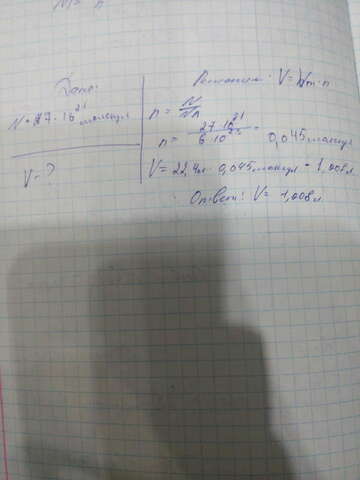 Дано:
N = 27 · 10²¹ молекул
V - ?
Решение: V = Vm · n
n = N/NA
n = 27 · 10²¹ / 6 · 10²³ = 0,045 молекул
V = 22,4л · 0,045 молекул = 1,008л
Ответ: V = 1,008л